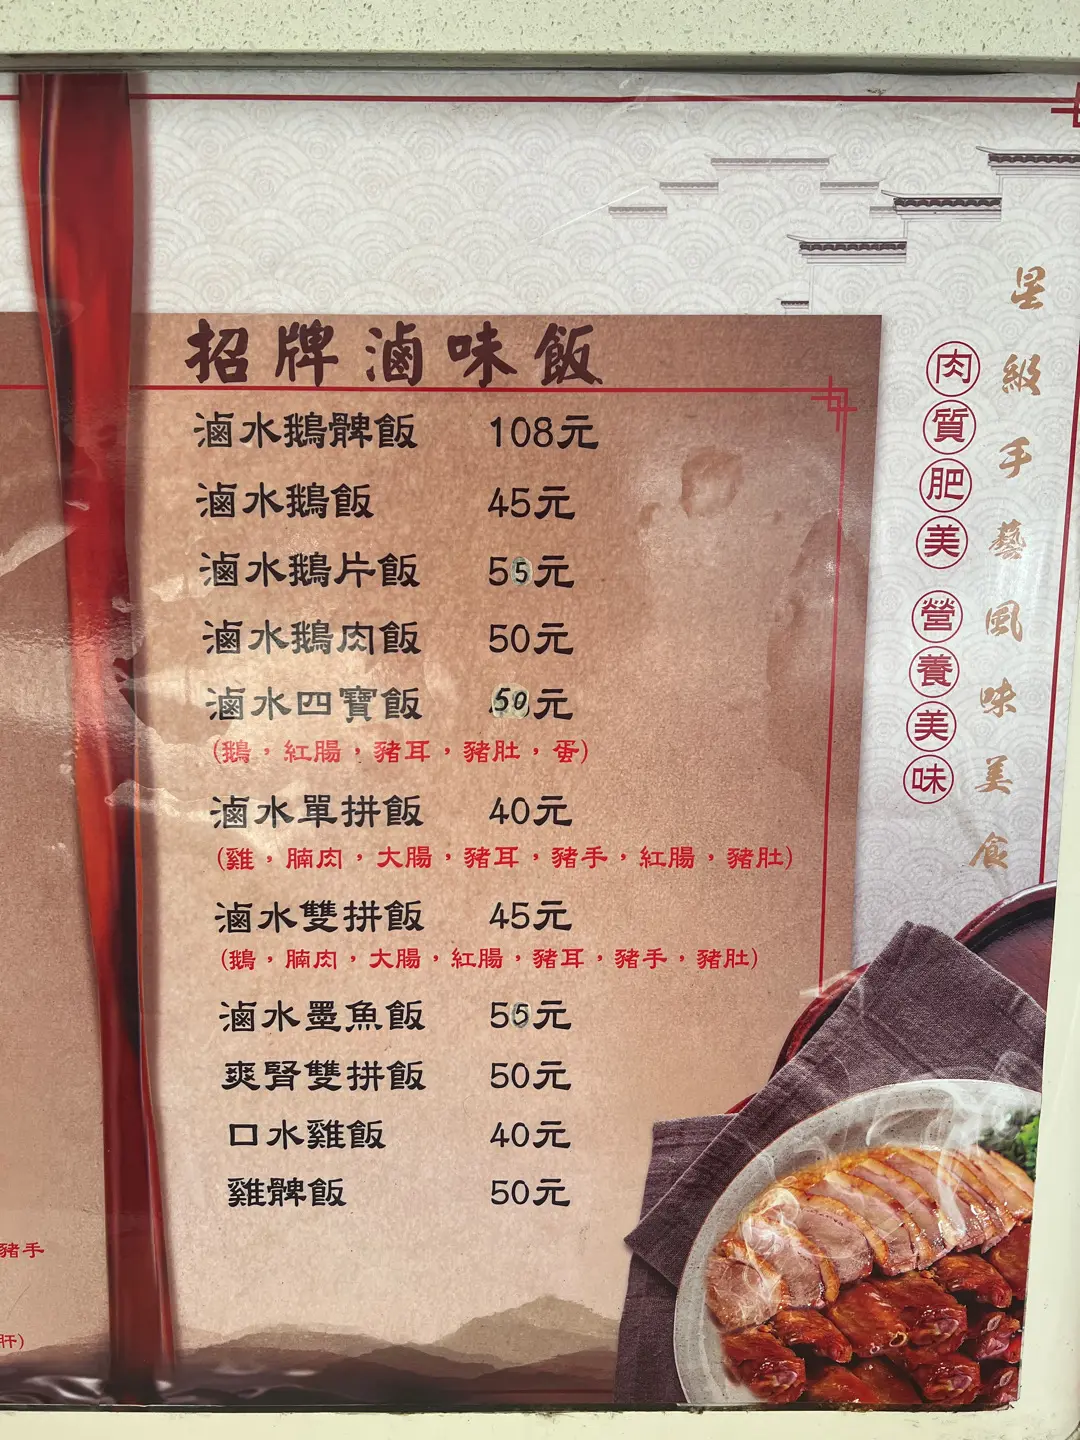 招牌滷味飯
滷水鵝髀飯 108元
滷水鵝飯 45元
滷水鵝片飯 55元
滷水鵝肉飯 50元
滷水四寶飯 50元
(鵝，紅腸，豬耳，豬肚，蛋)
滷水單拼飯 40元
(雞，腩肉，大腸，豬耳，豬手，紅腸，豬肚)
滷水雙拼飯 45元
(鵝，腩肉，大腸，紅腸，豬耳，豬手，豬肚)
滷水墨魚飯 55元
爽腎雙拼飯 50元
口水雞飯 40元
雞髀飯 50元
星級手藝風味美食
肉質肥美 營養美味
豬手
肝)